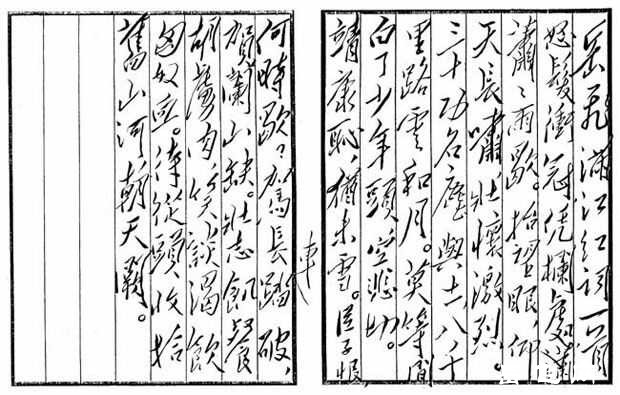 岳飛滿江紅詞一首
怒髮衝冠凭欄處瀟
瀟、雨歇。抬望眼,仰
天長嘯,壯懷激烈。
三十功名塵與土,八千
里路雲和月。莫等閒
白了少年頭,空悲切。
靖康恥,猶未雪。臣子恨,
何時歇、駕長車踏破,
賀蘭山缺。壯志飢餐
胡虜肉,笑談渴飲
匈奴血。待從頭收拾
舊山河朝天闕。